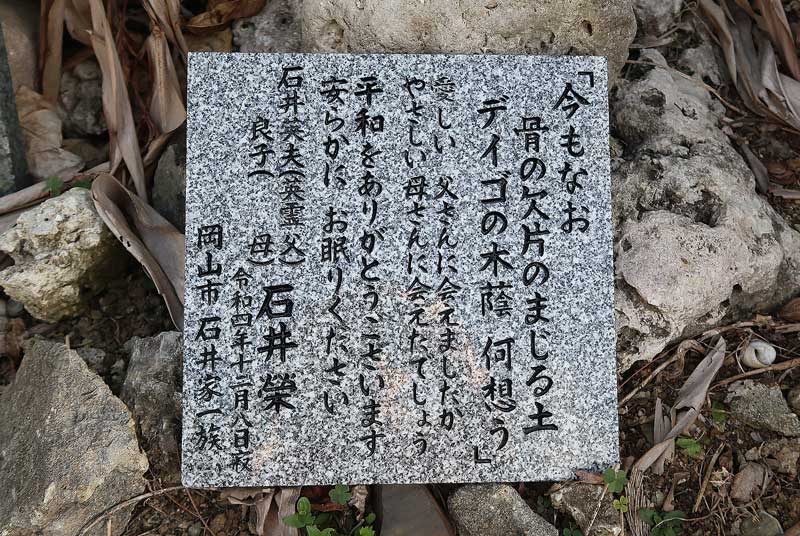 「今もなお
骨の欠片のまじる土
デイゴの木蔭 何想う」
愛しい 父さんに会えましたか
やさしい 母さんに会えたでしょう
平和をありがとうございます
安らかに お眠りください
石井英夫(英霊 父)
良子( 母)
石井 榮
令和四年十二月八日 寂
岡山市 石井家一族